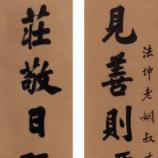 法坤老婣叔
見善則
莊敬日